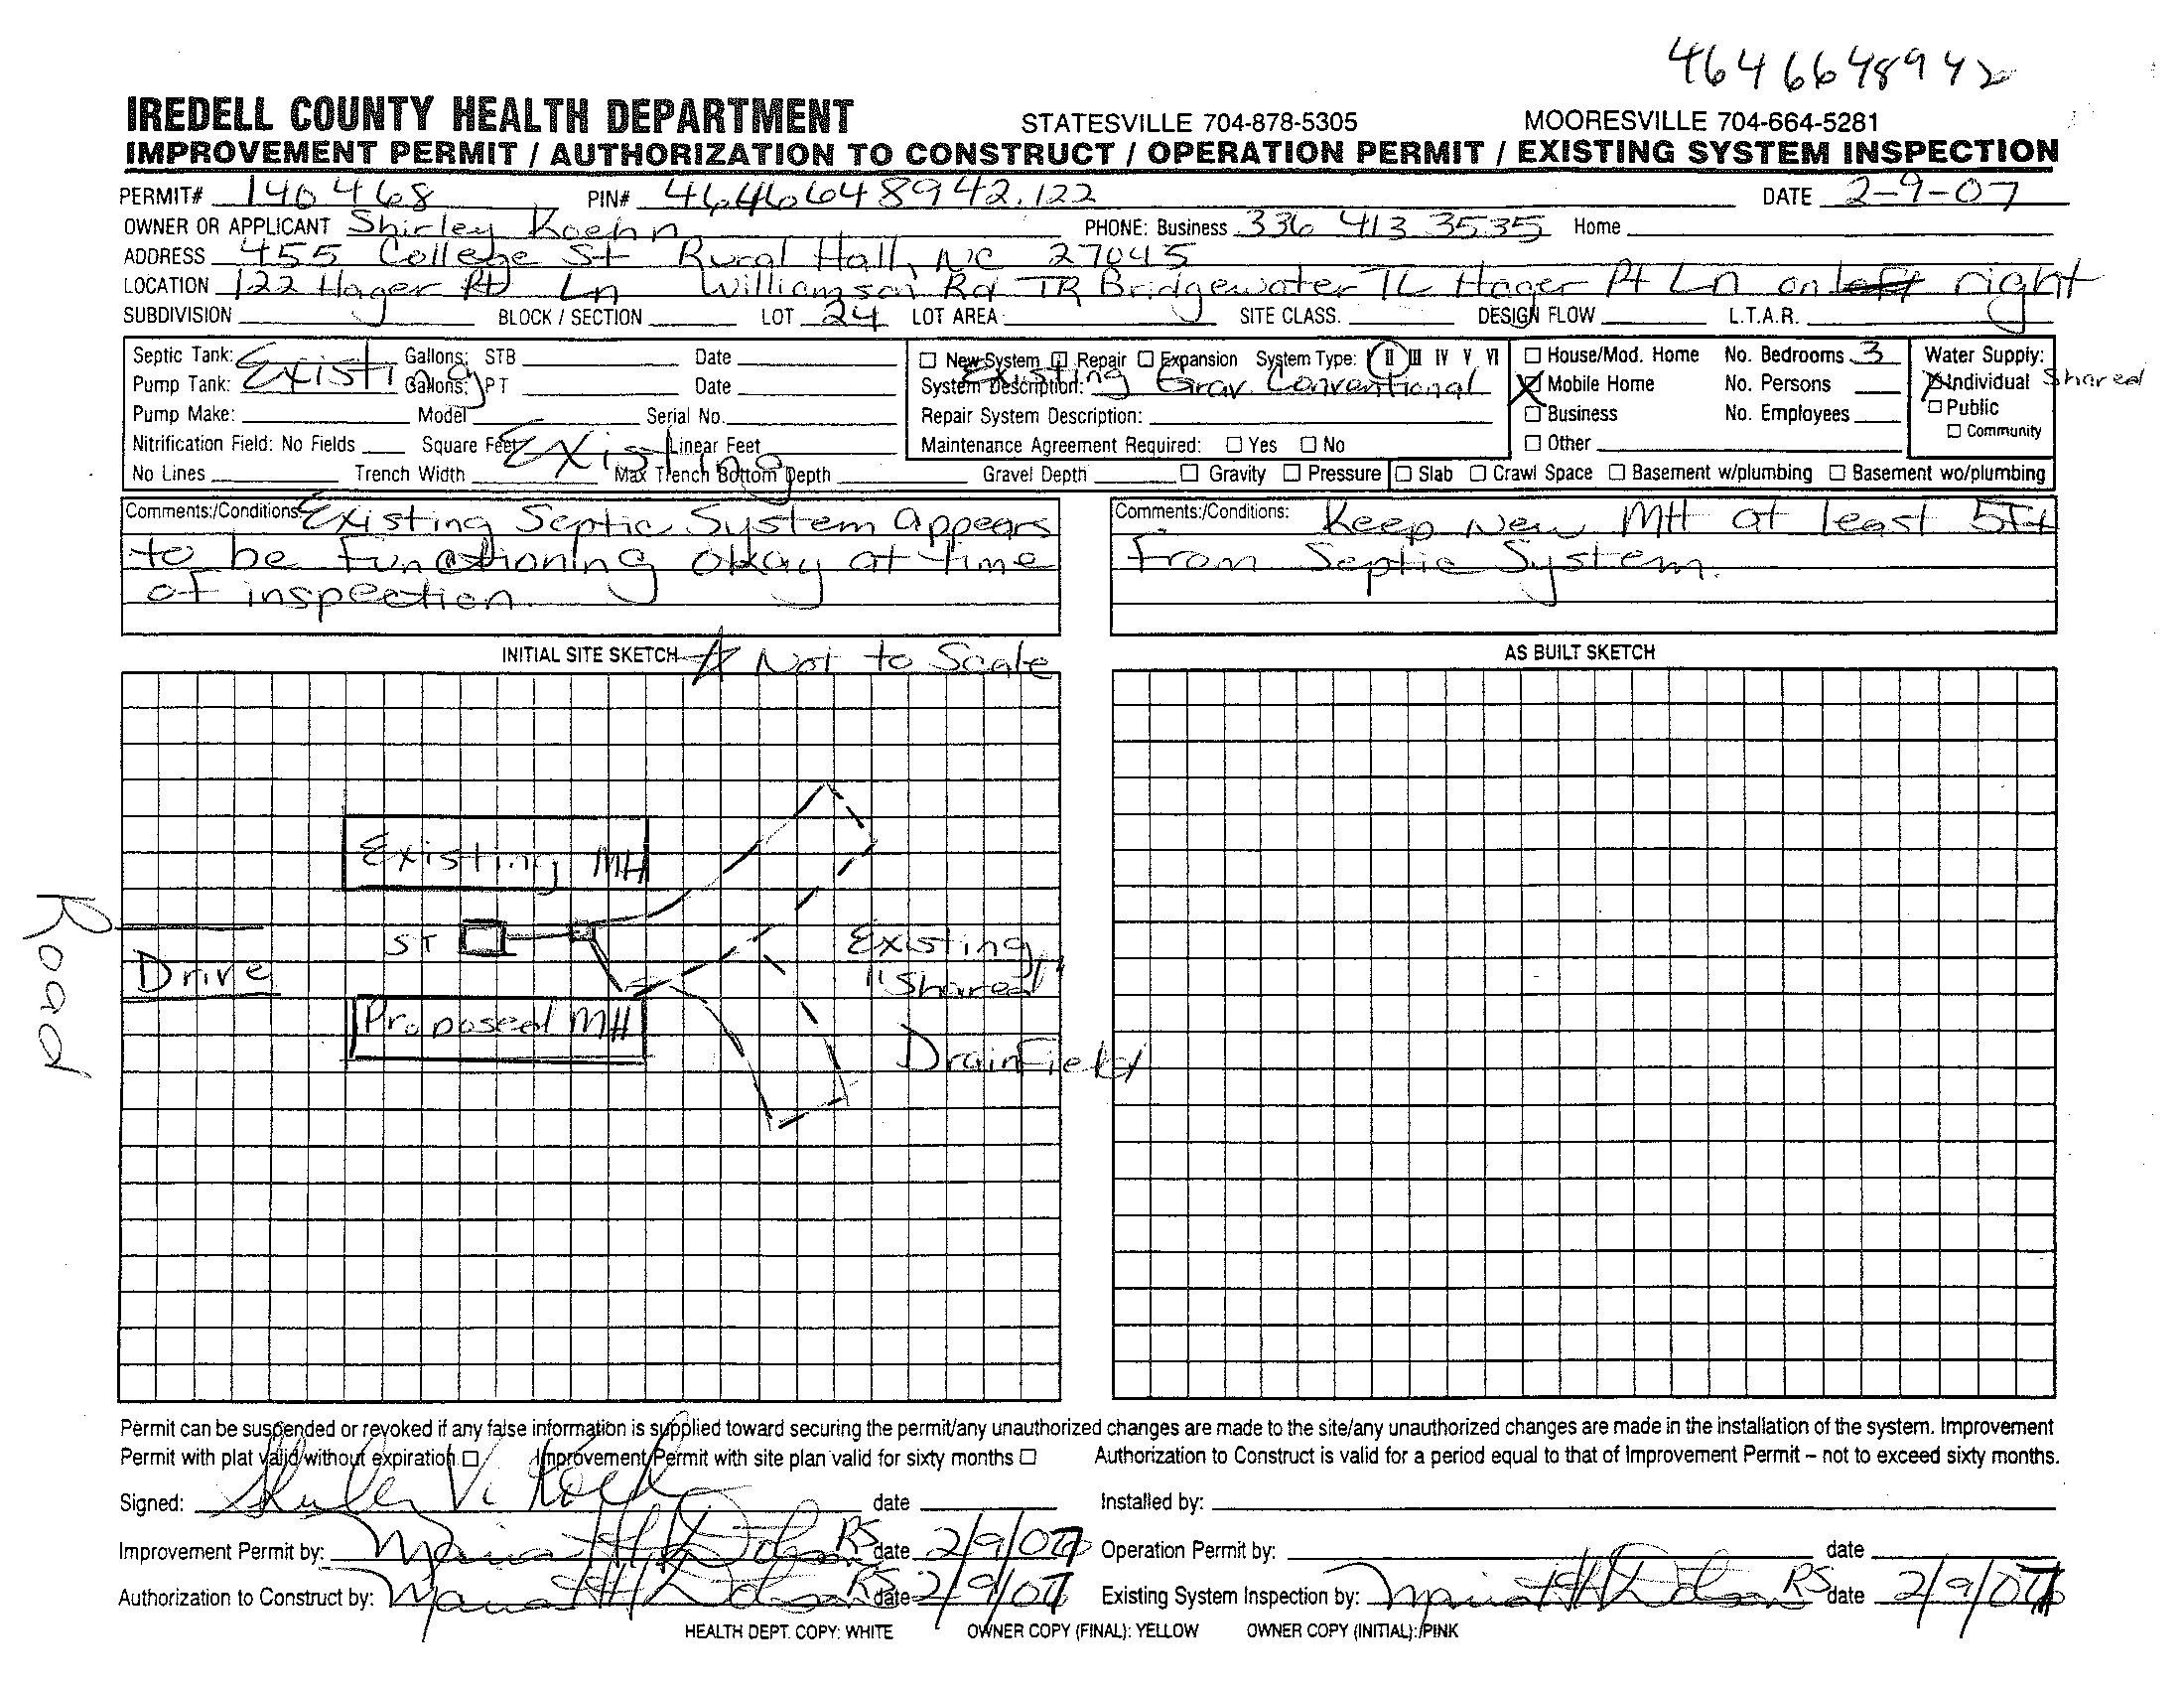 4646648942
IREDELL COUNTY HEALTH DEPARTMENT STATESVILLE 704-878-5305 MOORESVILLE 704-664-5281
IMPROVEMENT PERMIT / AUTHORIZATION TO CONSTRUCT / OPERATION PERMIT / EXISTING SYSTEM INSPECTION
PERMIT# 140468 PIN# 4646648942.122 DATE 2-9-07
OWNER OR APPLICANT Shirley Koehn PHONE: Business 336 413 3535 Home
ADDRESS 455 College St Rural Hall, NC 27045
LOCATION 122 Hager Pt Ln Williamson Rd TR Bridgewater TL Hager Pt Ln on left right
SUBDIVISION BLOCK / SECTION LOT 24 LOT AREA SITE CLASS. DESIGN FLOW L.T.A.R.
Septic Tank: Existing Gallons: STB Date
Pump Tank: Gallons: PT Date
Pump Make: Model Serial No.
Nitrification Field: No Fields Square Feet Existing Linear Feet
No Lines Trench Width Max Trench Bottom Depth Gravel Depth Gravity Pressure Slab Crawl Space Basement w/plumbing Basement wo/plumbing
New System Repair Expansion System Type: I II III IV V VI
System Description: Existing Grav. Conventional
Repair System Description:
Maintenance Agreement Required: Yes No
House/Mod. Home No. Bedrooms 3
Mobile Home No. Persons
Business No. Employees
Other
Water Supply:
Individual Shared
Public
Community
Comments:/Conditions: Existing Septic System appears
to be functioning okay at time
of inspection.
Comments:/Conditions: Keep New MH at least 5ft
From Septic System.
INITIAL SITE SKETCH Not to Scale
AS BUILT SKETCH
Existing MH
Road
Drive
ST
Existing
"Shared"
Drainfield
Proposed MH
Permit can be suspended or revoked if any false information is supplied toward securing the permit/any unauthorized changes are made to the site/any unauthorized changes are made in the installation of the system. Improvement
Permit with plat valid without expiration Improvement Permit with site plan valid for sixty months Authorization to Construct is valid for a period equal to that of Improvement Permit – not to exceed sixty months.
Signed: Shirley V. Koehn date Installed by:
Improvement Permit by: RS date 2/9/07 Operation Permit by: date
Authorization to Construct by: RS date 2/9/07 Existing System Inspection by: RS date 2/9/07
HEALTH DEPT. COPY: WHITE OWNER COPY (FINAL): YELLOW OWNER COPY (INITIAL): PINK